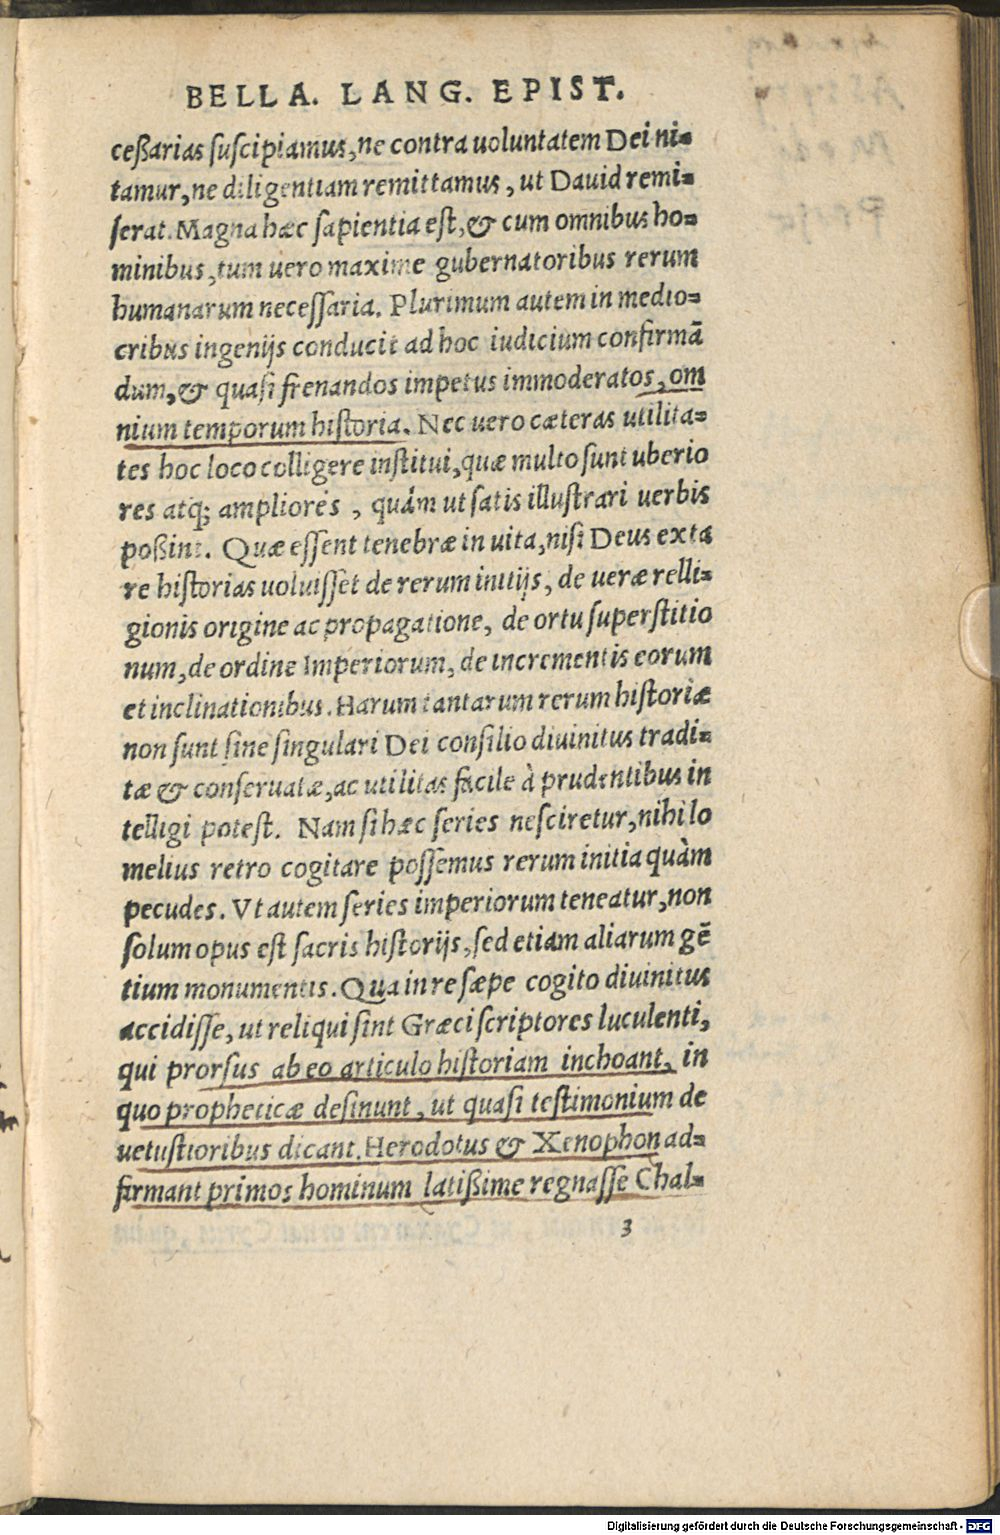 BELLA. LANG. EPIST.
ceßarias suscipiamus, ne contra uoluntatem Dei ni=
tamur, ne diligentiam remittamus, ut Dauid remi=
serat. Magna hæc sapientia est, & cum omnibus ho=
minibus, tum uero maxime gubernatoribus rerum
humanarum necessaria. Plurimum autem in medio=
cribus ingenijs conducit ad hoc iudicium confirmā
dum, & quasi frenandos impetus immoderatos, om
nium temporum historia. Nec uero cæteras utilita=
tes hoc loco colligere institui, quæ multo sunt uberio
res atq; ampliores, quàm ut satis illustrari uerbis
poßint. Quæ essent tenebræ in uita, nisi Deus exta
re historias uoluisset de rerum initijs, de ueræ relli=
gionis origine ac propagatione, de ortu superstitio
num, de ordine Imperiorum, de incrementis eorum
et inclinationibus. Harum tantarum rerum historiæ
non sunt sine singulari Dei consilio diuinitus tradi=
tæ & conseruatæ, ac utilitas facile à prudentibus in
telligi potest. Nam si hæc series nesciretur, nihilo
melius retro cogitare possemus rerum initia quàm
pecudes. Vt autem series imperiorum teneatur, non
solum opus est sacris historijs, sed etiam aliarum gē
tium monumentis. Qua in re sæpe cogito diuinitus
accidisse, ut reliqui sint Græci scriptores luculenti,
qui prorsus ab eo articulo historiam inchoant, in
quo propheticæ desinunt, ut quasi testimonium de
uetustioribus dicant. Herodotus & Xenophon ad=
firmant primos hominum latißime regnasse Chal=
3
Digitalisierung gefördert durch die Deutsche Forschungsgemeinschaft - DFG